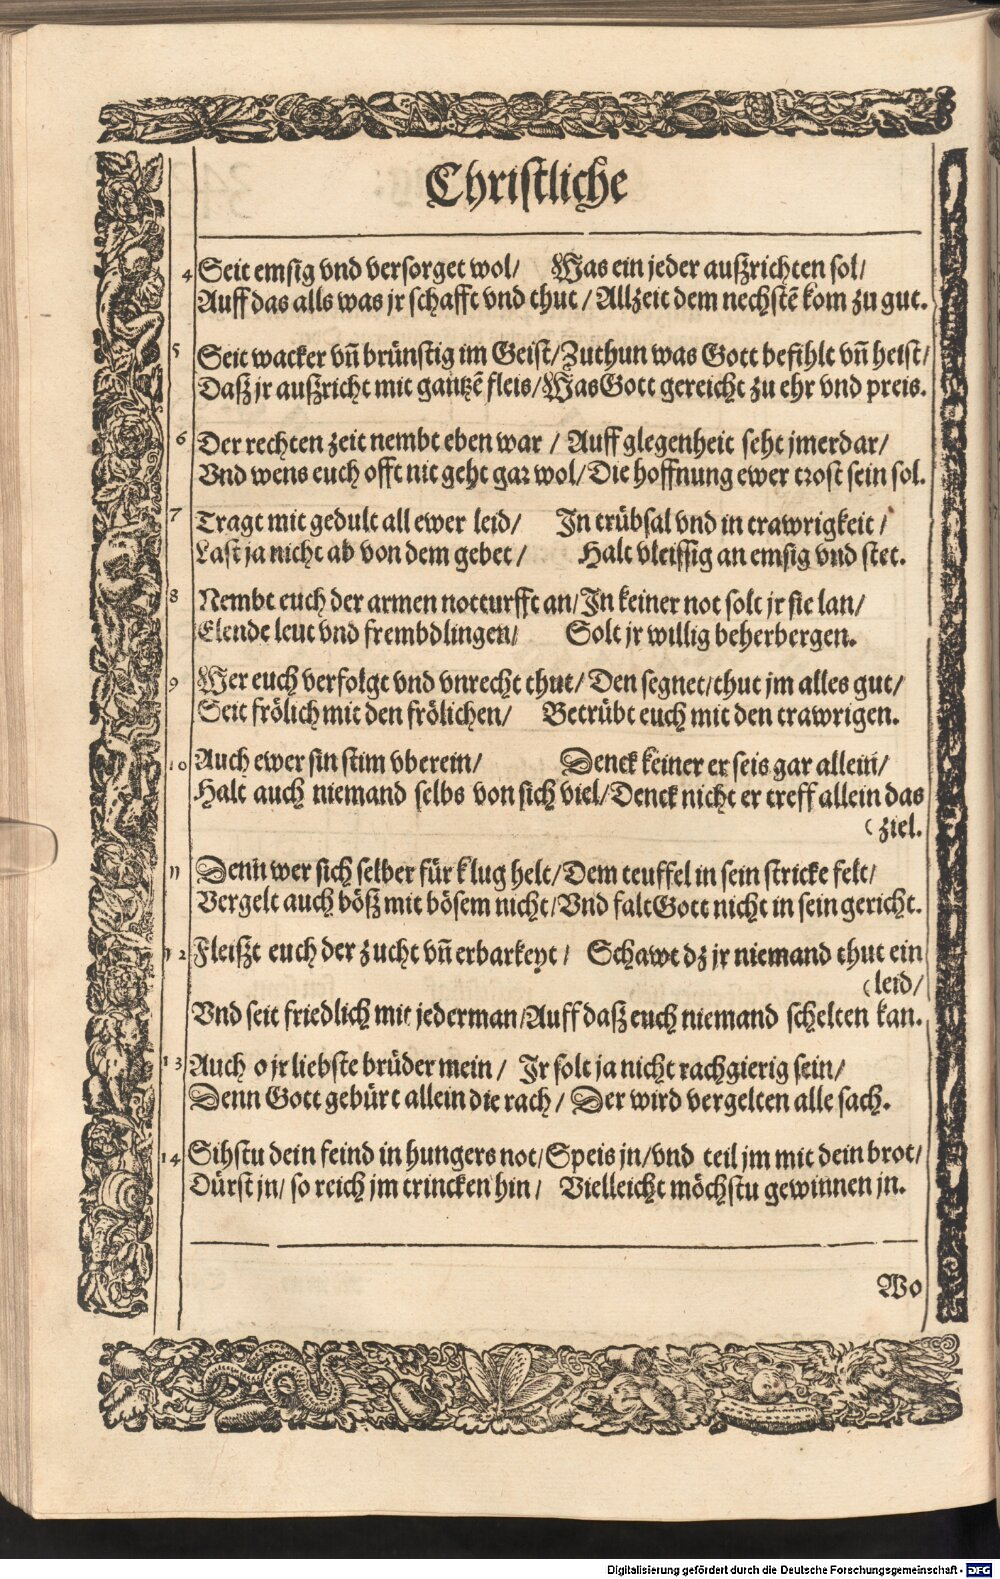 Christliche
4 Seit emsig vnd versorget wol/ Was ein jeder außrichten sol/
Auff das alls was jr schafft vnd thut / Allzeit dem nechstē kom zu gut.
5 Seit wacker vn̄ brünstig im Geist/ Zuthun was Gott befihlt vn̄ heist/
Daß jr außricht mit gantzē fleis/ Was Gott gereicht zu ehr vnd preis.
6 Der rechten zeit nembt eben war / Auff glegenheit seht jmerdar/
Vnd wens euch offt nit geht gar wol/ Die hoffnung ewer trost sein sol.
7 Tragt mit gedult all ewer leid/ In trübsal vnd in trawrigkeit /
Last ja nicht ab von dem gebet / Halt vleissig an emsig vnd stet.
8 Nembt euch der armen notturfft an/ In keiner not solt jr sie lan/
Elende leut vnd frembdlingen/ Solt jr willig beherbergen.
9 Wer euch verfolgt vnd vnrecht thut/ Den segnet/ thut jm alles gut/
Seit frölich mit den frölichen/ Betrübt euch mit den trawrigen.
10 Auch ewer sin stim vberein/ Denck keiner er seis gar allein/
Halt auch niemand selbs von sich viel/ Denck nicht er treff allein das
(ziel.
11 Denn wer sich selber für klug helt/ Dem teuffel in sein stricke felt/
Vergelt auch böß mit bösem nicht/ Vnd falt Gott nicht in sein gericht.
12 Fleißt euch der zucht vn̄ erbarkeyt / Schawt dz jr niemand thut ein
(leid/
Vnd seit friedlich mit jederman/ Auff daß euch niemand schelten kan.
13 Auch o jr liebste brüder mein / Ir solt ja nicht rachgierig sein/
Denn Gott gebürt allein die rach / Der wird vergelten alle sach.
14 Sihstu dein feind in hungers not/ Speis jn/ vnd teil jm mit dein brot/
Dürst jn/ so reich jm trincken hin / Vielleicht möchstu gewinnen jn.
Wo
Digitalisierung gefördert durch die Deutsche Forschungsgemeinschaft - DFG